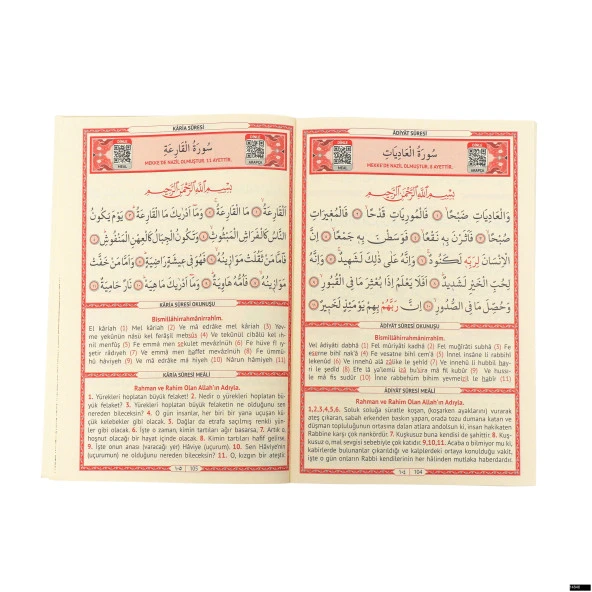 KÂRİA SÛRESİ
DİNLE
MEAL
سُورَةُ الْقَارِعَةِ
MEKKE'DE NAZİL OLMUŞTUR. 11 AYETTİR.
DİNLE
ARAPÇA
بِسْمِ اللّٰهِ الرَّحْمٰنِ الرَّحِيمِ
اَلْقَارِعَةُ ۙ مَا الْقَارِعَةُ ۚ وَمَٓا اَدْرٰيكَ مَا الْقَارِعَةُ ۜ يَوْمَ يَكُونُ
النَّاسُ كَالْفَرَاشِ الْمَبْثُوثِ ۙ وَتَكُونُ الْجِبَالُ كَالْعِهْنِ الْمَنْفُوشِ ۜ
فَاَمَّا مَنْ ثَقُلَتْ مَوَازٖينُهُ ۙ فَهُوَ فٖي عٖيشَةٍ رَاضِيَةٍ ۜ وَاَمَّا مَنْ خَفَّتْ
مَوَازٖينُهُ ۙ فَاُمُّهُ هَاوِيَةٌ ۜ وَمَٓا اَدْرٰيكَ مَا هِيَهْ ۜ نَارٌ حَامِيَةٌ
KÂRİA SÛRESİ OKUNUŞU
Bismillâhirrahmânirrahîm.
El kâriah (1) Mel kâriah (2) Ve mâ edrâke mel kâriah (3) Yev-
me yekûnün nâsü kel ferâşil mebsûs (4) Ve tekûnül cibâlü kel ıh-
nil menfûş (5) Fe emmâ men sekulet mevâzînüh (6) Fe hüve fî ıy-
şetir râdıyeh (7) Ve emmâ men haffet mevâzînüh (8) Fe ümmü-
hû hâviyeh (9) Ve mâ edrâke mâ hiyeh (10) Nârun hâmiyeh (11)
KÂRİA SÛRESİ MEÂLİ
Rahman ve Rahim Olan Allah'ın Adıyla.
1. Yürekleri hoplatan büyük felaket! 2. Nedir o yürekleri hoplatan bü-
yük felaket? 3. Yürekleri hoplatan büyük felaketin ne olduğunu sen
nereden bileceksin? 4. O gün insanlar, her biri bir yana uçuşan kü-
çük kelebekler gibi olacak. 5. Dağlar da etrafa saçılmış renkli yün-
ler gibi olacak. 6. İşte o zaman, kimin tartıları ağır basarsa, 7. Artık o,
hoşnut olacağı bir hayat içinde olacak. 8. Kimin tartıları hafif gelirse,
9. İşte onun anası (varacağı yer) Hâviye'dir (uçurumdur). 10. Sen Hâviye'nin
(uçurumun) ne olduğunu nereden bileceksin? 11. O, kızgın bir ateştir.
١٠٥ 105
ÂDİYÂT SÛRESİ
DİNLE
MEAL
سُورَةُ الْعَادِيَاتِ
MEKKE'DE NAZİL OLMUŞTUR. 8 AYETTİR.
DİNLE
ARAPÇA
بِسْمِ اللّٰهِ الرَّحْمٰنِ الرَّحِيمِ
وَالْعَادِيَاتِ ضَبْحًا ۙ فَالْمُورِيَاتِ قَدْحًا ۙ فَالْمُغٖيرَاتِ
صُبْحًا ۙ فَاَثَرْنَ بِهٖ نَقْعًا ۙ فَوَسَطْنَ بِهٖ جَمْعًا ۙ اِنَّ
الْاِنْسَانَ لِرَبِّهٖ لَكَنُودٌ ۚ وَاِنَّهُ عَلٰى ذٰلِكَ لَشَهٖيدٌ ۚ وَاِنَّهُ
لِحُبِّ الْخَيْرِ لَشَدٖيدٌ ۜ اَفَلَا يَعْلَمُ اِذَا بُعْثِرَ مَا فِي الْقُبُورِ ۙ
وَحُصِّلَ مَا فِي الصُّدُورِ ۙ اِنَّ رَبَّهُمْ بِهِمْ يَوْمَئِذٍ لَخَبٖيرٌ
ÂDİYÂT SÛRESİ OKUNUŞU
Bismillâhirrahmânirrahîm.
Vel âdiyâti dabhâ (1) Fel mûriyâti kadhâ (2) Fel muğîrâti subhâ (3) Fe
eserne bihî nak'â (4) Fe vesatne bihî cem'â (5) İnnel insâne li rabbihî
lekenûd (6) Ve innehû alâ zâlike le şehîd (7) Ve innehû li hubbil hay-
ri le şedîd (8) Efe lâ ya'lemü izâ bu'sira mâ fil kubûr (9) Ve hussi-
le mâ fis sudûr (10) İnne rabbehüm bihim yevmeizil le habîr (11)
ÂDİYÂT SÛRESİ MEÂLİ
Rahman ve Rahim Olan Allah'ın Adıyla.
1,2,3,4,5,6. Soluk soluğa süratle koşan, (koşarken ayaklarını) vurarak
ateş çıkaran, sabah erkenden baskın yapan, orada tozu dumana katan ve
düşman topluluğunun ortasına dalan atlara andolsun ki, insan hakikaten
Rabbine karşı çok nankördür. 7. Kuşkusuz buna kendisi de şahittir. 8. Kuş-
kusuz o, mal sevgisi sebebiyle pek çok katıdır. 9,10,11. Acaba o bilmiyor mu ki,
kabirlerde bulunanlar çıkarıldığı ve kalplerdeki ortaya konulduğu vakit,
işte o gün onların Rabbi kendilerinin her hâlinden mutlaka haberdardır.
١٠٤ 104